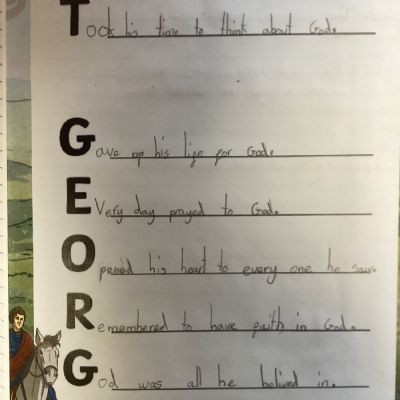 Took his time to think about God.
Gave up his life for God.
EVery day prayed to God.
Opened his heart to every one he saw.
Remembered to have faith in God.
God was all he belived in.